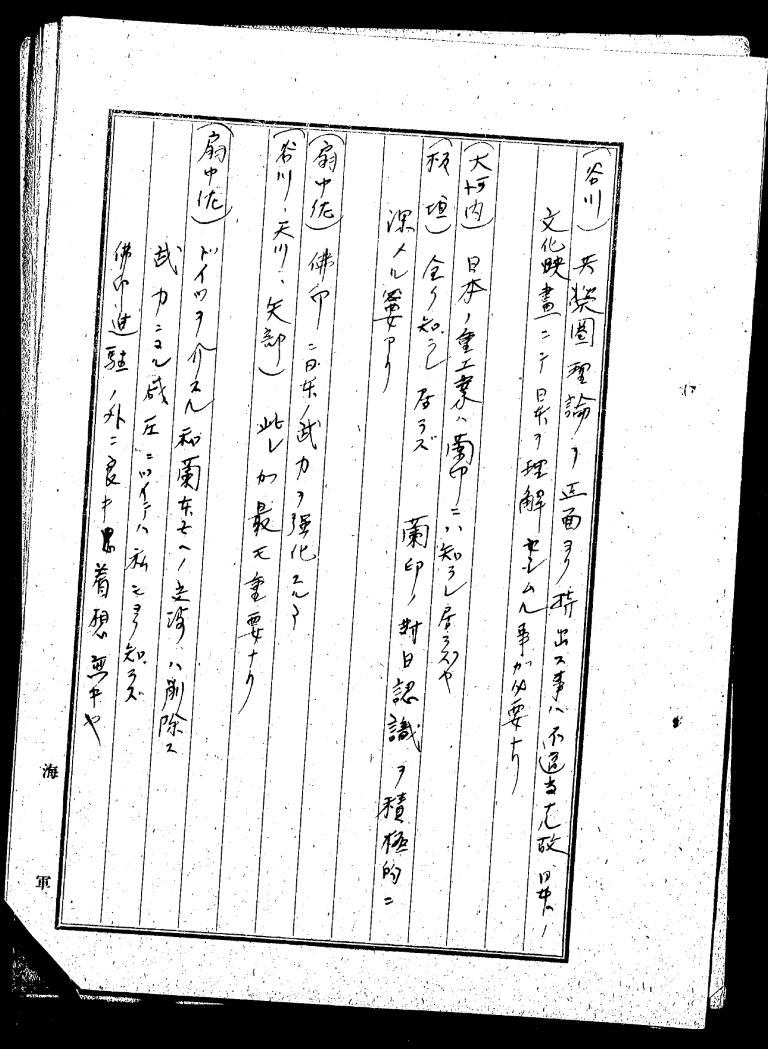 (谷川) 共榮圏理論ヲ正面ヨリ持出ス事ハ不適当ナル故、日本ノ
文化映畫ニテ日本ヲ理解セシムル事ガ必要ナリ
(大河内) 日本ノ重工業ハ蘭印ニハ知ラレ居ラズヤ
(板垣) 全ク知ラレ居ラズ 蘭印ノ對日認識ヲ積極的ニ
深メル要アリ
(扇中佐) 佛印ニ日本ノ武力ヲ強化スル
(谷川、天川、矢部) 此レガ最モ重要ナリ
(扇中佐) ドイツヲ介スル和蘭本モヘノ ハ削除ス
武力ニヨル威圧ニツイテハ私モヨク知ラズ
佛印進駐ノ外ニ良キ着想無キヤ
海軍